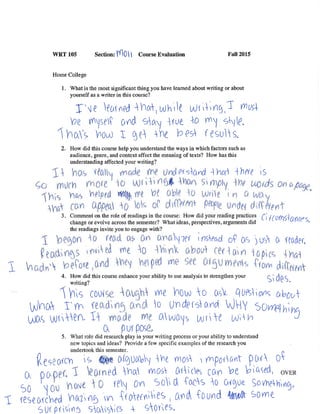 WRT 105 Section: M011 Course Evaluation Fall 2015
Home College
1. What is the most significant thing you have learned about writing or about
yourself as a writer in this course?
I've learned that, while writing, I must
be myself and stay true to my style.
That's how I get the best results.
2. How did this course help you understand the ways in which factors such as
audience, genre, and context affect the meaning of texts? How has this
understanding affected your writing?
It has really made me understand that there is
so much more to writing than simply the words on a page.
This has helped me be able to write in a way
that can appeal to lots of different people under different
circumstances.
3. Comment on the role of readings in the course. How did your reading practices
change or evolve across the semester? What ideas, perspectives, arguments did
the readings invite you to engage with?
I began to read as an analyzer instead of as just a reader.
Readings invited me to think about certain topics that
I hadn't before, and they helped me see arguments from different
sides.
4. How did this course enhance your ability to use analysis to strengthen your
writing?
This course taught me how to ask questions about
what I'm reading and to understand WHY something
was written. It made me always write with
a purpose.
5. What role did research play in your writing process or your ability to understand
new topics and ideas? Provide a few specific examples of the research you
undertook this semester.
Research is arguably the most important part of
a paper. I learned that most articles can be biased, OVER
so you have to rely on solid facts to argue something.
I researched hazing in fraternities, and found some
surprising statistics + stories.